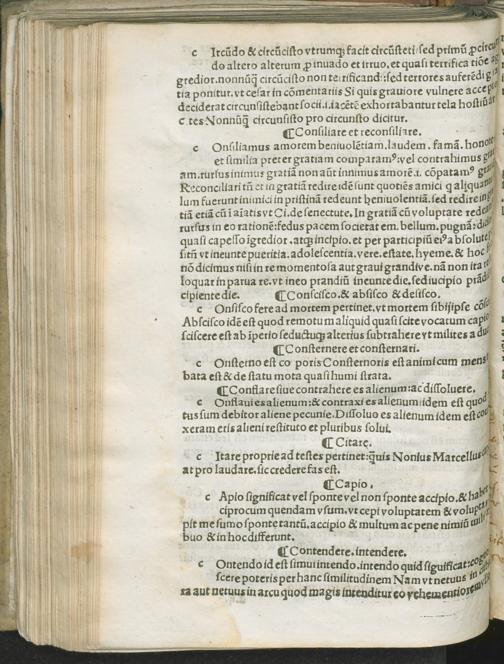 c Itcũdo & circũcisto vtrumq; facit circũsteti: sed primũ ꝓ
do altero alterum ꝓ inuado et irruo, et quasi terrifica tiõe
gredior.nonnũq̃ circũcisto non te rrificand: sed terrores auferẽdi
tia ponitur.vt cesar in cõmentariis Si quis grauiore vulnere
deciderat circunsistebant socii.i.iacẽtẽ exhortabantur tela
c tes Nonnũq̃ circunsisto pro circunsto dicitur.
¶Consiliare et reconsiliare.
c Onsiliamus amorem beniuolẽtiam.laudem.famã.
et similia preter gratiam comparamꝰ: vel contrahimus
am.rursus inimus gratiã non aũt innimus amorẽ.i.cõpatamꝰ
Reconciliari tñ et in gratiã redire idẽ sunt quotiẽs amici q aliquan
lum fuerunt inimici in pristinã redeunt beniuolentiã.sed redire in
tiã etiã cũ iaiatis vt Ci.de senectute.In gratiã cũ voluptate
rursus in eo rationẽ:fedus pacem societatem.bellum.pugnã:
quasi capesso igredior.atq; incipio.et per participiũ eiꝰa absolute
sitñ vt ineunte pueritia.adolescentia.vere.estate.hyeme.& hoc
nõ dicimus nisi in re momentosa aut graui grandive.nã non ita
loquar in parua re.vt ineo prandiũ ineunte die.sed ucipio
cipiente die. ¶Conscisco.& abscisco & descisco.
c Onsisco fere ad mortem pertinet.vt mortem sibi ipse
Abscisco idẽ est quod remotum aliquid quasi scite vocatum
sciscere est ab iperio seductuq; alterius subtrahere vt milites a
¶Consternere et consternari.
c Onsterno est co poris Consternoris est animi cum
bata est & de statu mota quasi humi strata.
¶Conflare siue contrahere es alienum: ac dissoluere.
c Onflaui es alienum: & contraxi es alienum idem est quod
tus sum debitor aliene pecunie.Dissoluo es alienum idem est
xeram eris alieni restituto et pluribus solui.
¶Citare.
c Itare proprie ad testes pertinet: q̃uis Nonius Marcellus
at pro laudare.sic credere fas est.
¶Capio.
c Apio significat vel sponte vel non sponte accipio.&
ciprocum quendam vsum.vt cepi voluptatem &
pit me sumo sponte tantũ.accipio & multum ac pene nimiũ
buo & in hoc differunt.
¶Contendere.intendere.
c Ontendo id est simul intendo.intendo quid significat:
scere poteris per hanc similitudinem Nam vt neruus in
ra aut neruus in arcu quod magis intenditur eo